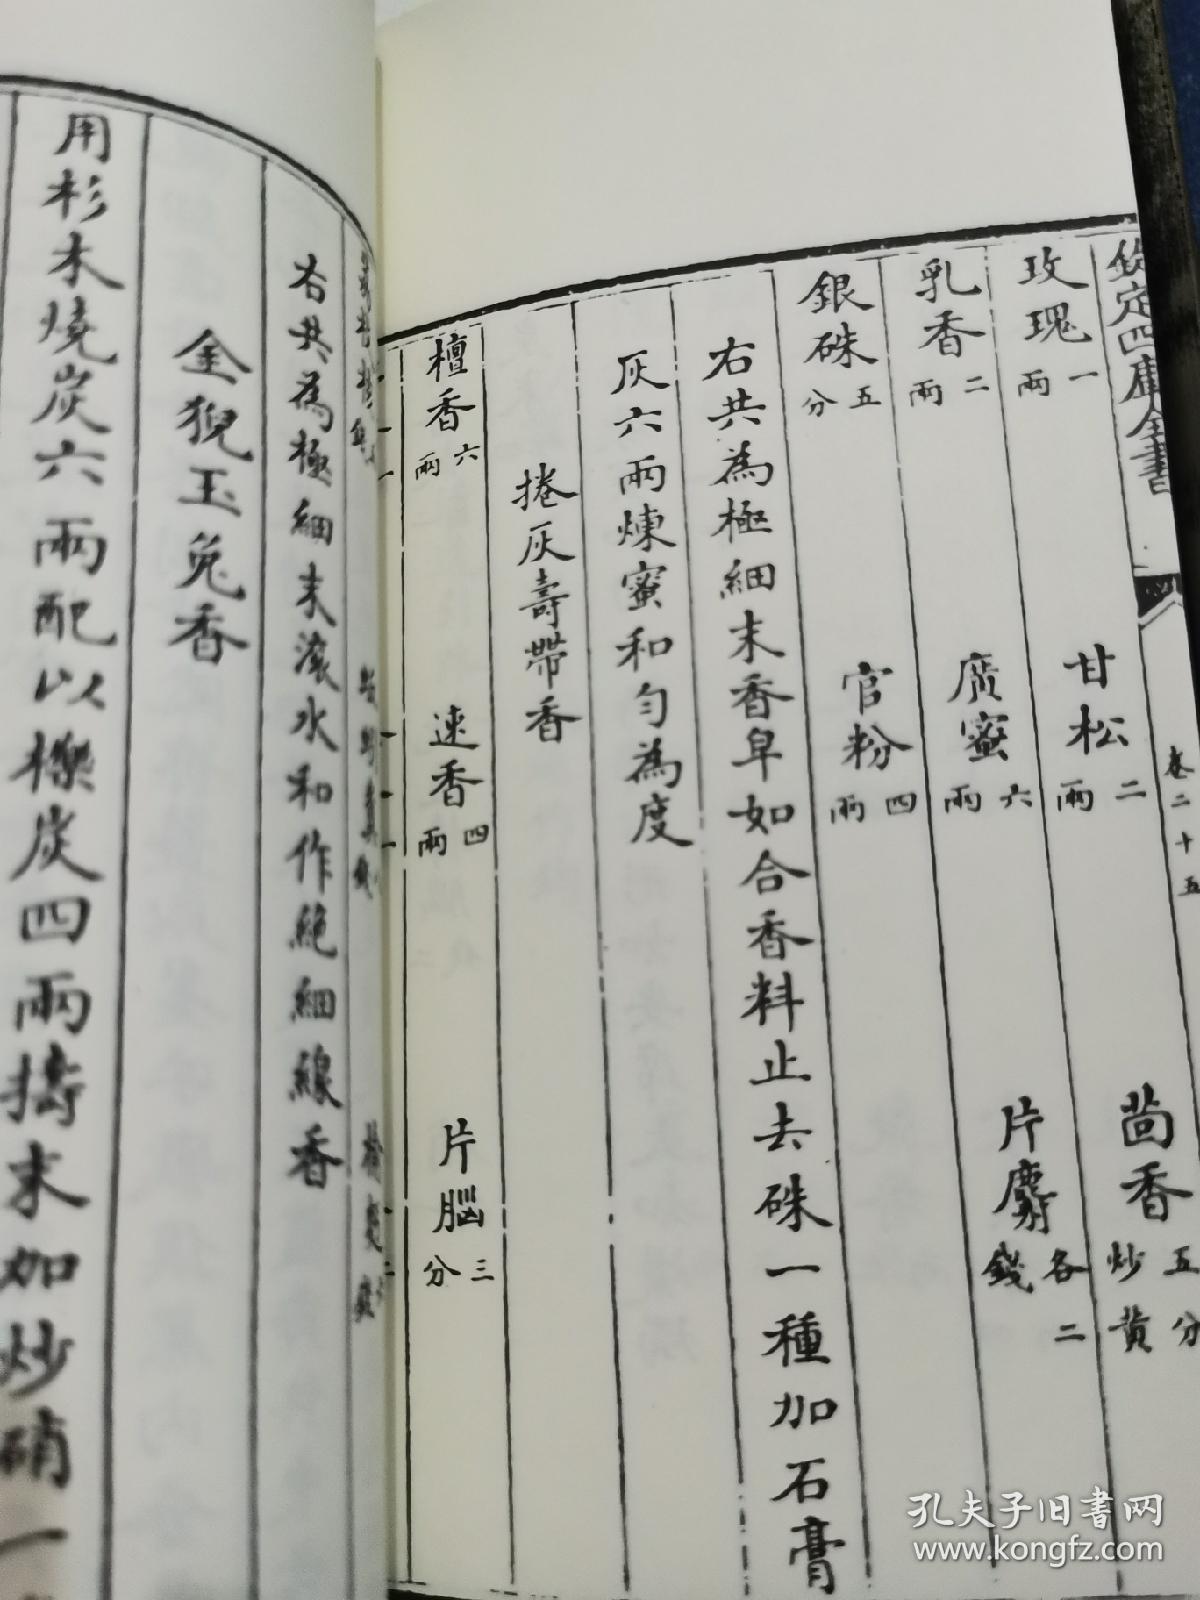 欽定四庫全書
卷二十五
玫瑰一兩 甘松二兩 茴香五分炒黃
乳香二兩 廣蜜六兩 片麝各二錢
銀硃五分 官粉四兩
右共為極細末香皁如合香料止去硃一種加石膏
灰六兩煉蜜和勻為度
捲灰壽帶香
檀香六兩 速香四兩 片腦三分
右共為極細末滾水和作絶細線香
金猊玉兔香
用杉木燒炭六兩配以櫟炭四兩擣末加炒硝一
孔夫子旧书网
www.kongfz.com